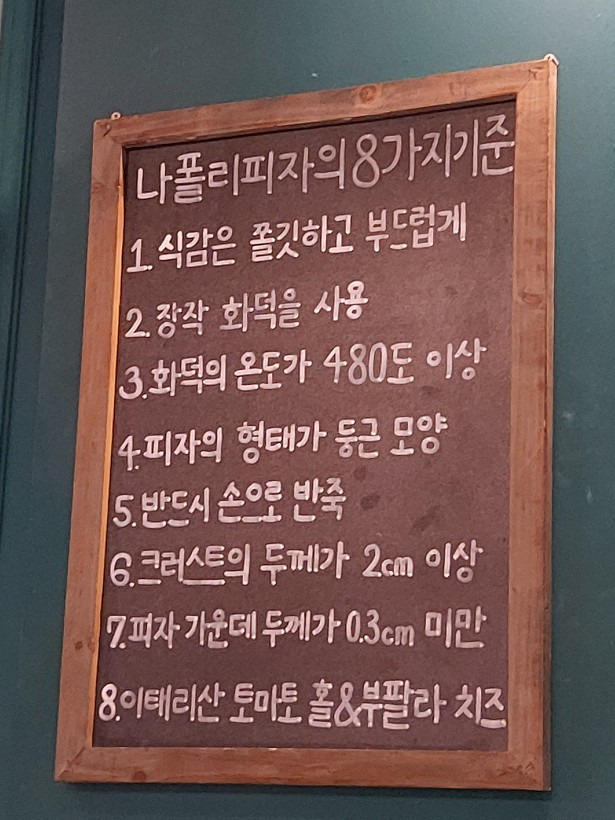 나폴리피자의 8가지기준
1. 식감은 쫄깃하고 부드럽게
2. 장작 화덕을 사용
3. 화덕의 온도가 480도 이상
4. 피자의 형태가 둥근 모양
5. 반드시 손으로 반죽
6. 크러스트의 두께가 2cm 이상
7. 피자 가운데 두께가 0.3cm 미만
8. 이태리산 토마토 홀&부팔라 치즈